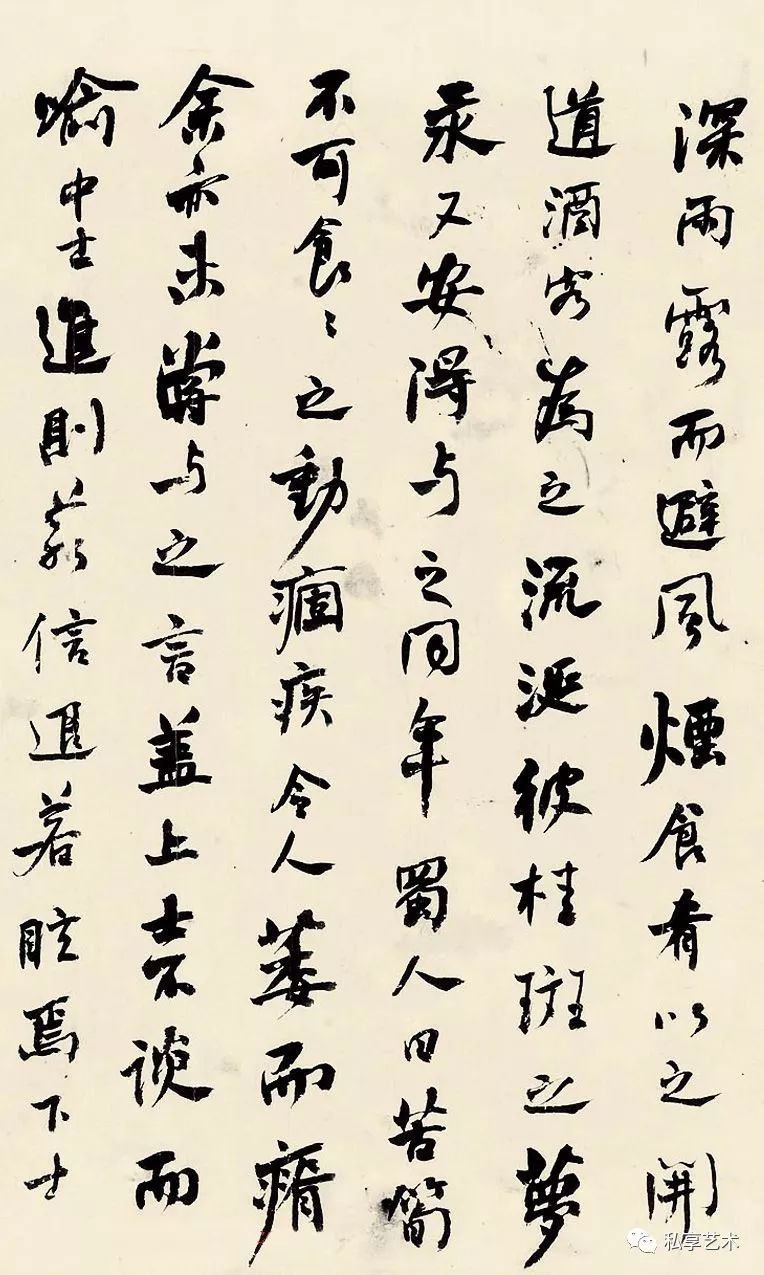 深雨露而避風煙食肴以之開
道酒客為之流涎彼桂斑之夢
汞又安得与之同年蜀人曰苦筍
不可食〻之動痼疾令人萎而瘠
余亦未嘗与之言盖上士不談而
喻中士進則若信退若眩焉下士
私享艺术